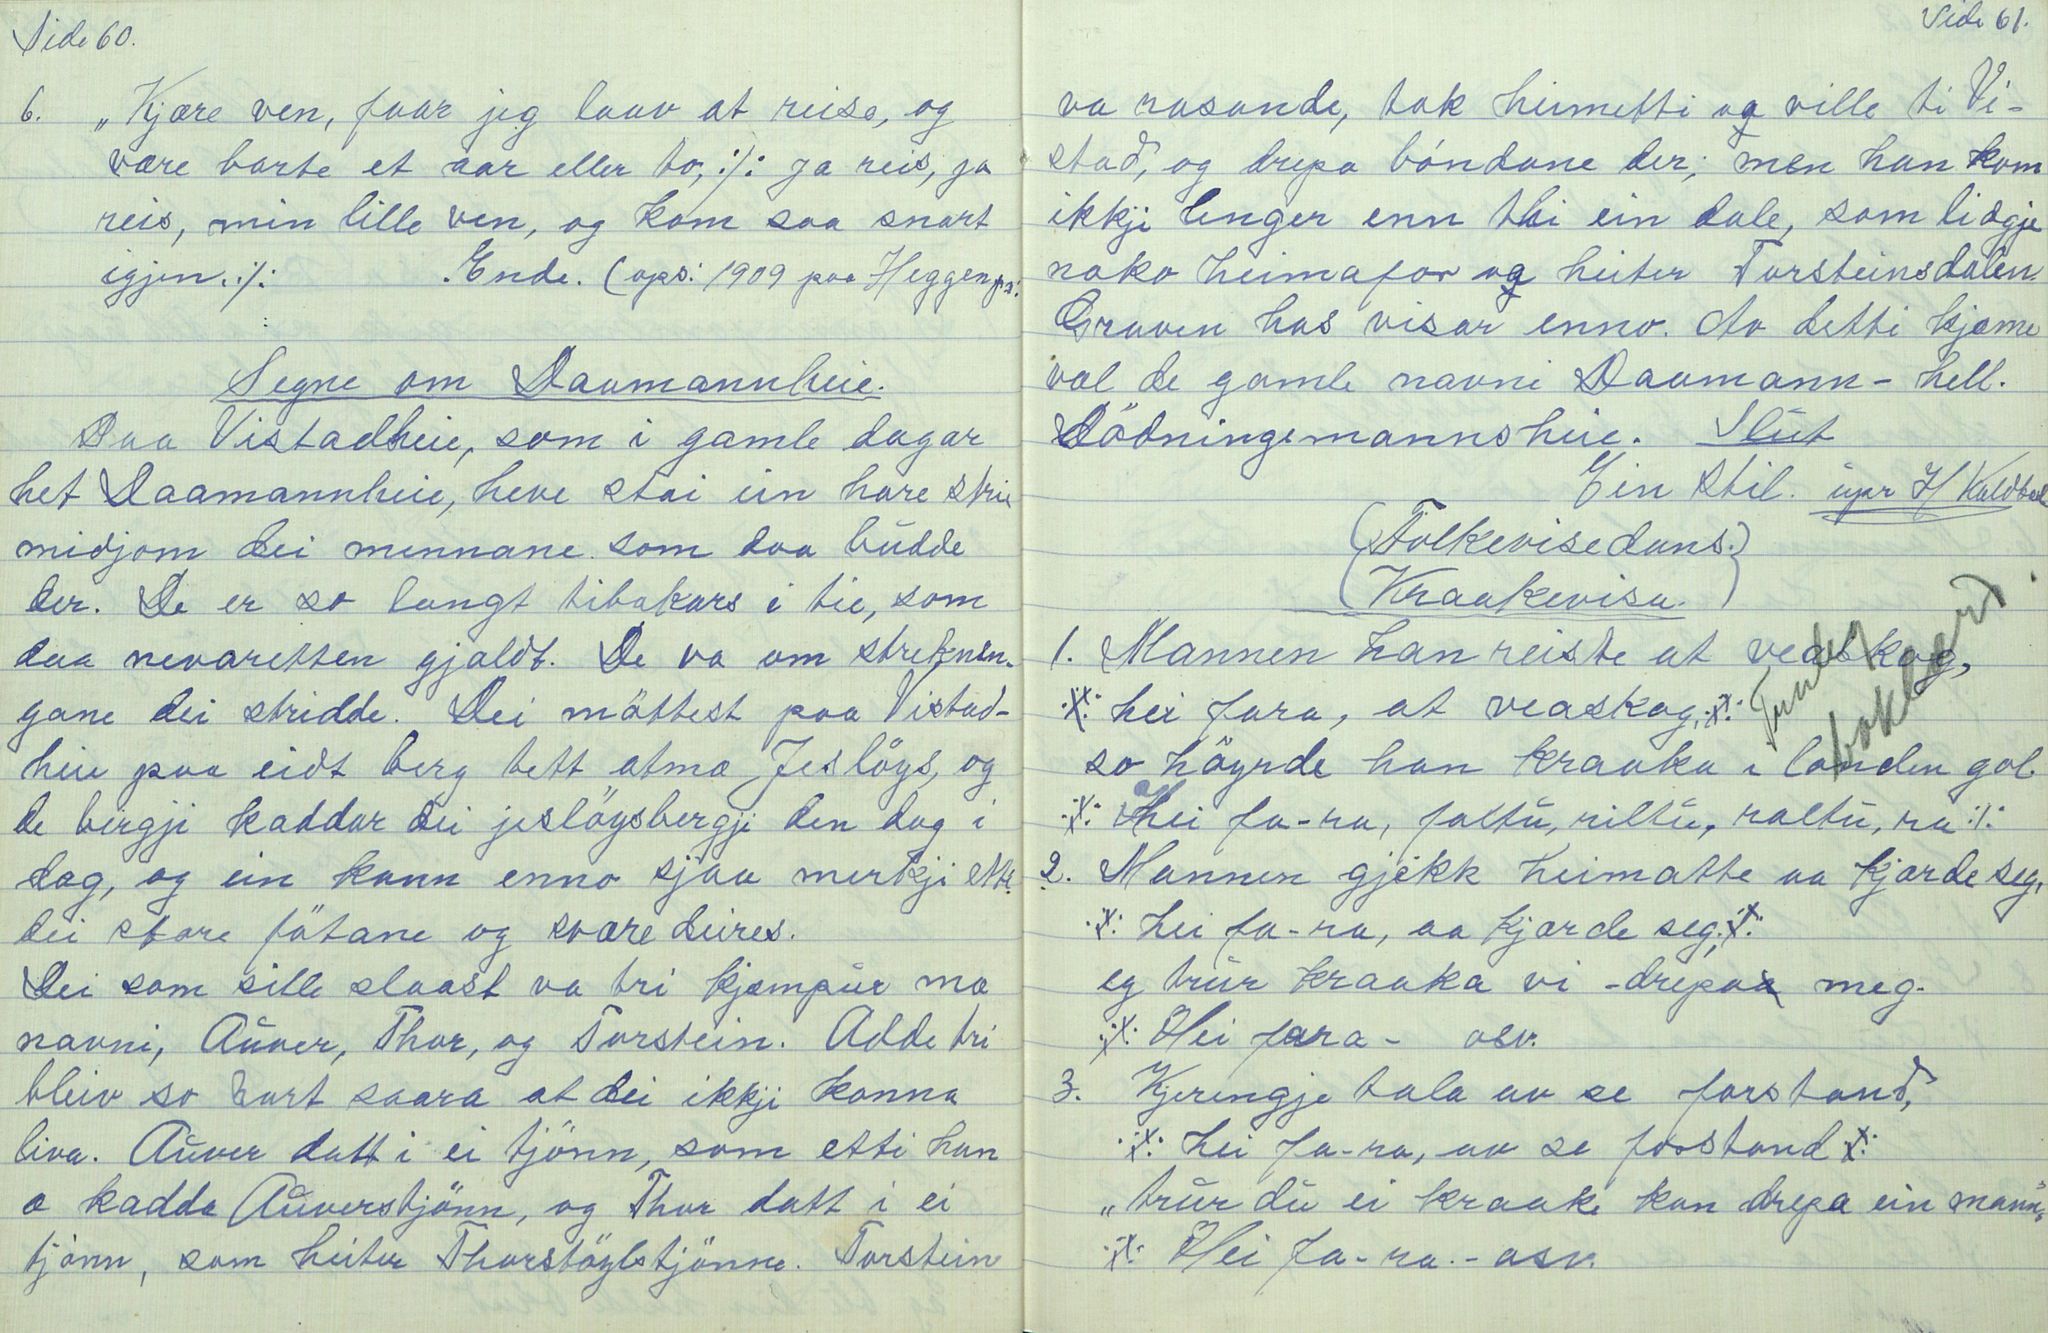 Side 60.
6. „Kjære ven, faar jeg laav at reise, og
være borte et aar eller to, :/: ja reis, ja
reis, min lille ven, og kom saa snart
igjen. :/: Ende. (ops: 1909 paa Heggen
Segne om Daumannheie.
Paa Vistadheie, som i gamle dagar
het Daamannheie, heve stai ein hare strie
midjom dei mennane som daa budde
der. De er so langt tibakars i tie, som
daa nevaretten gjaldt. De va om
gane dei stridde. Dei möttest paa Vistad-
heie paa eidt berg tett atmæ Jeslöys, og
de bergji kaddar dei jeslöysbergji den dag i
dag, og ein kann enno sjaa merkji ette
dei store fötane og svære deires.
Dei som sille slaast va tri kjempur mæ
navni, Auver, Thor, og Torstein. Adde tri
bleiv so hart saara at dei ikkji konna
liva. Auver datt i ei tjönn, som etti han
æ kadda Auverstjönn, og Thor datt i ei
tjönn, som heiter Thorstöylstjönne. Torstein
Side 61.
va rasande, tok heimetti og ville ti Vi-
stad, og drepa bóndane der; men han kom
ikkji lenger enn thi ein dale, som lidgje
noko heimafor og heiter Torsteinsdalen.
Graven has visar enno. Av detti kjæme
val de gamle navni Daumann- hell.
Dödningemannsheie. Slut
Ein stil. H Kaldbak
(Folkevisedans.)
(Kraakevisa.)
1. Mannen han reiste at veaskog,
:/: hei fara, at veaskog, :/:
so höyrde han kraaka i londen gol
:/: Hei fa-ra, faltu, riltu, raltu, ra :/:
2. Mannen gjekk heimatte aa kjærde seg,
:/: hei fa-ra, aa kjærde seg. :/:
eg trur kraaka vi -drepa meg.
:/: Hei fara- osv.
3. Kjeringje tala av se forstand,
:/: hei fa-ra, av se forstand :/:
„trur du ei kraake kan drepa ein mann"
:/: Hei fa-ra.- osv.